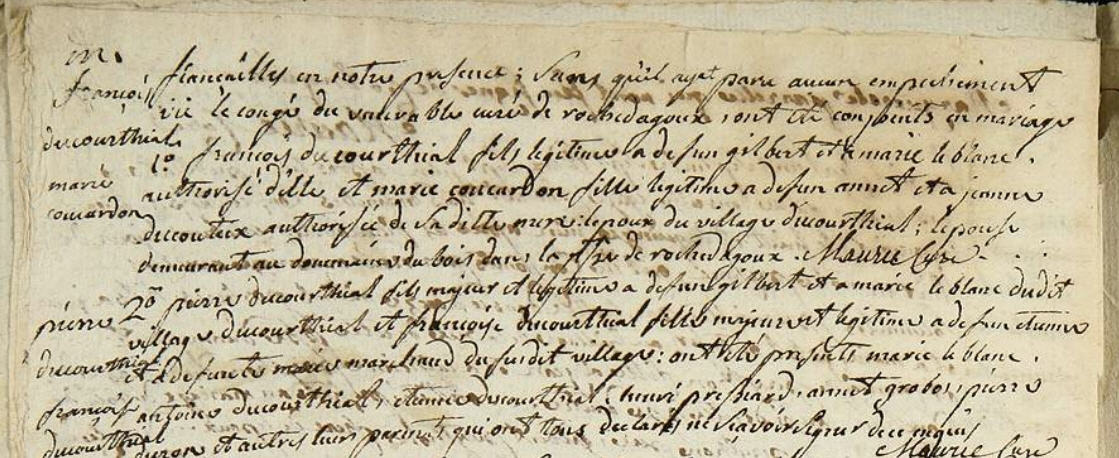 m.
françois
ducourthial
marie
coucardon
pierre
ducourthial
françoise
ducourthial
fiançailles en notre presence ; sans qu'il ayt paru aucun empechement
vû le congé du venerable curé de rochedagoux ont été conjoints en mariage
1º françois ducourthial fils legitime a defun gilbert et a marie leblanc.
authorisé d'elle et marie coucardon fille legitime a defun annet et a jeanne
ducouteix authorisée de sa ditte mere : lepoux du village ducourthial ; lepouse
demeurant au domaine du bois dans la psse de rochedagoux. Maurie Curé.
2º pierre ducourthial fils majeur et legitime a defun gilbert et a marie leblanc dudit
village ducourthial et françoise ducourthial fille majeure et legitime a defun etienne
et a defunte marie marchaud du susdit village : ont été presents marie leblanc.
antoine ducourthial, etienne ducourthial, henri pressiard. annet grobos, pierre
duron et autres leurs parents qui ont tous declarés ne sçavoir signer de ce enquis
Maurie Curé